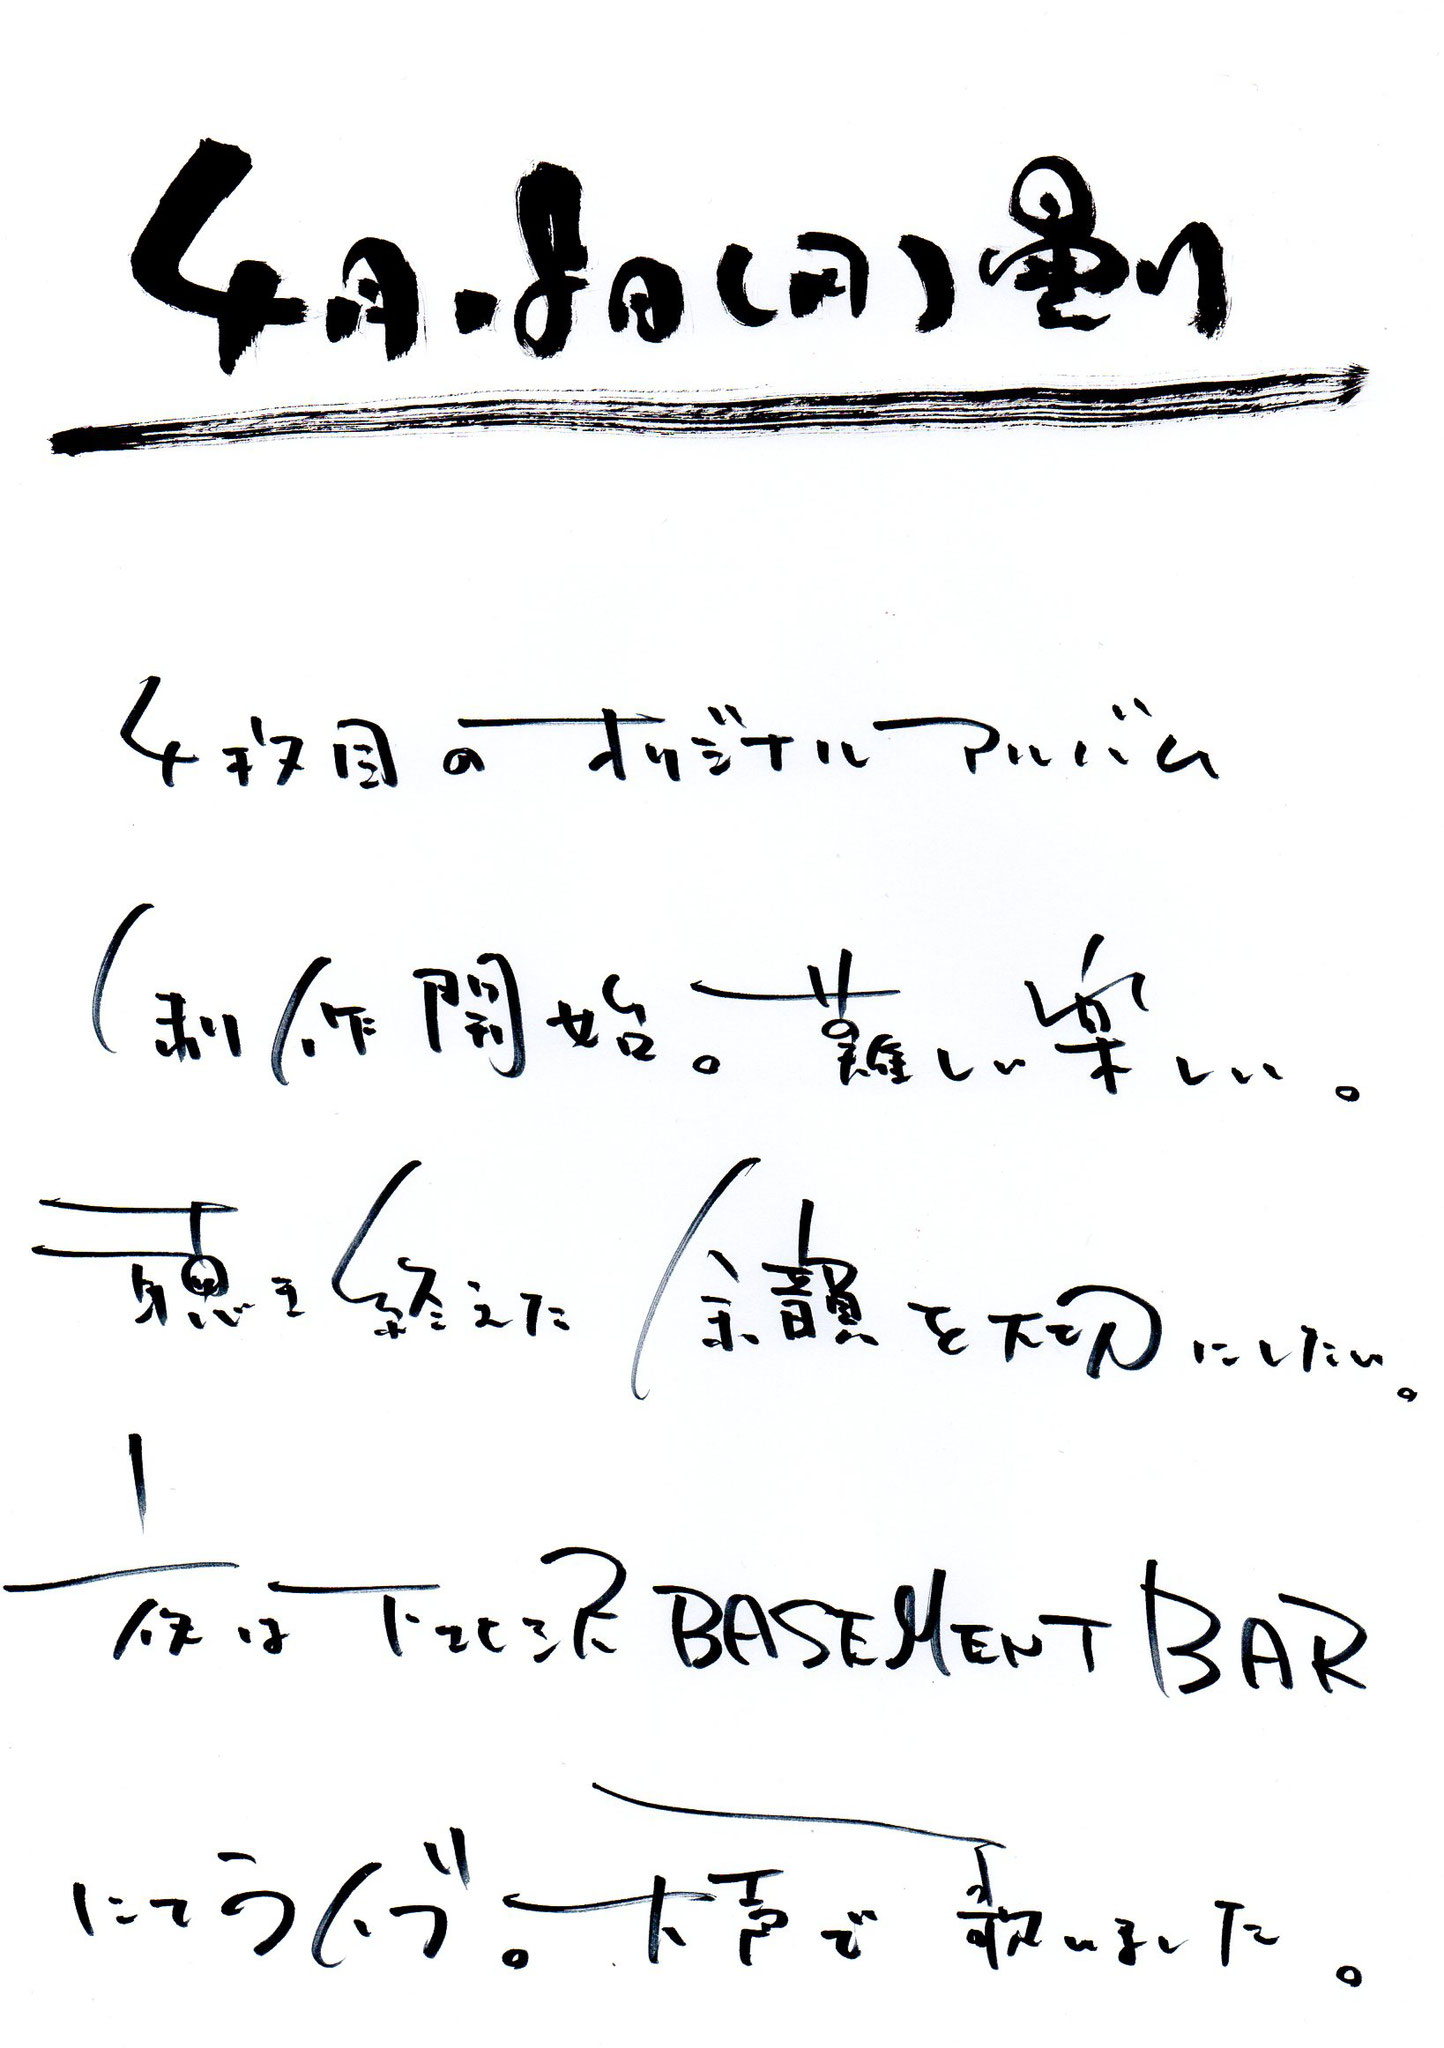 4月.8日(月)曇り
4枚目のオリジナルアルバム
制作開始。難しい楽しい。
聴き終えた余韻を大切にしたい。
夜は下北沢BASEMENT BAR
にてライブ。大声で歌いました。